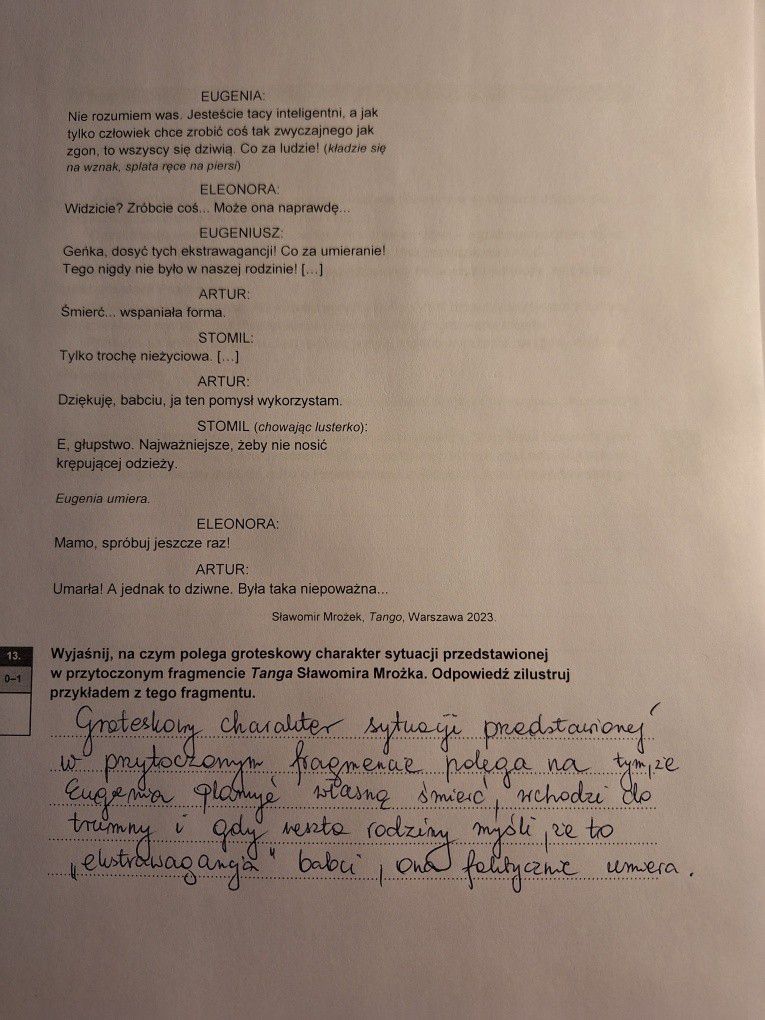 EUGENIA:
Nie rozumiem was. Jesteście tacy inteligentni, a jak
tylko człowiek chce zrobić coś tak zwyczajnego jak
zgon, to wszyscy się dziwią. Co za ludzie! (kładzie się
na wznak, splata ręce na piersi)
ELEONORA:
Widzicie? Zróbcie coś... Może ona naprawdę...
EUGENIUSZ:
Geńka, dosyć tych ekstrawagancji! Co za umieranie!
Tego nigdy nie było w naszej rodzinie! [...]
ARTUR:
Śmierć... wspaniała forma.
STOMIL:
Tylko trochę nieżyciowa. [...]
ARTUR:
Dziękuję, babciu, ja ten pomysł wykorzystam.
STOMIL (chowając lusterko):
E, głupstwo. Najważniejsze, żeby nie nosić
krępującej odzieży.
Eugenia umiera.
ELEONORA:
Mamo, spróbuj jeszcze raz!
ARTUR:
Umarła! A jednak to dziwne. Była taka niepoważna...
Sławomir Mrożek, Tango, Warszawa 2023.
13.
0–1
Wyjaśnij, na czym polega groteskowy charakter sytuacji przedstawionej
w przytoczonym fragmencie Tanga Sławomira Mrożka. Odpowiedź zilustruj
przykładem z tego fragmentu.
Groteskowy charakter sytuacji przedstawionej
w przytoczonym fragmencie polega na tym, że
Eugenia planuje własną śmierć, wchodzi do
trumny i gdy reszta rodziny myśli, że to
„ekstrawagancja" babci, ona faktycznie umiera.